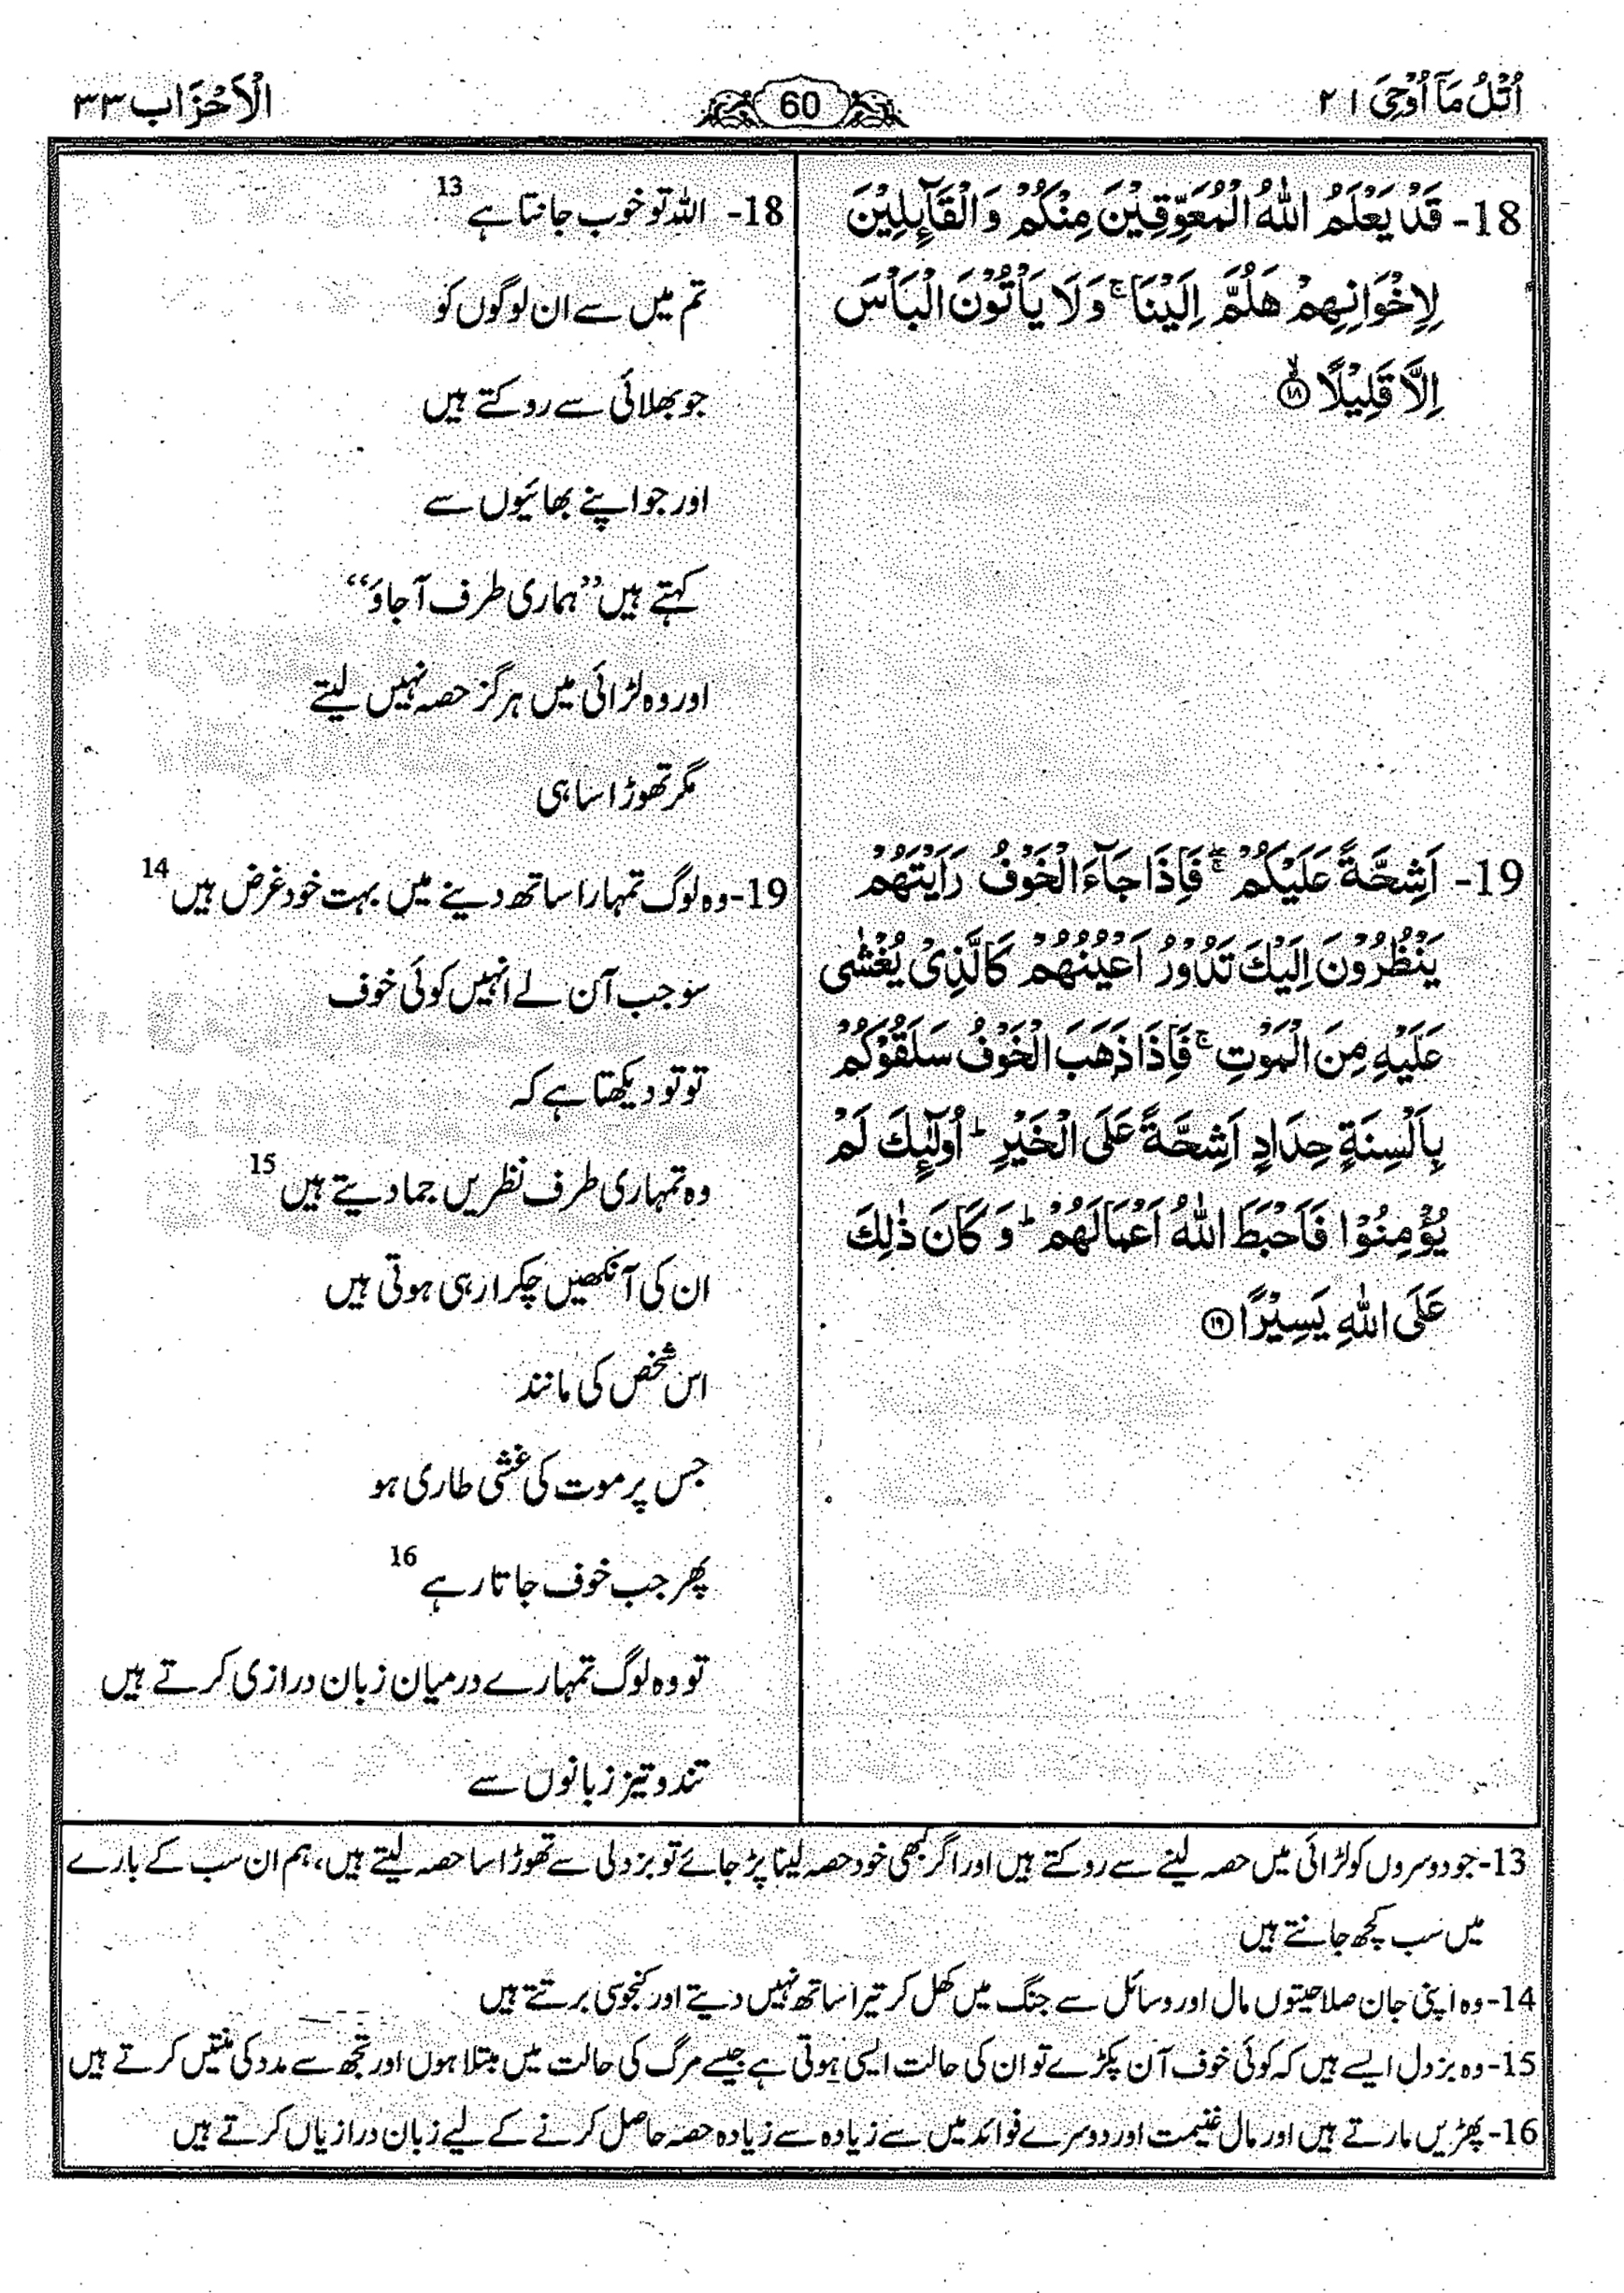 اُتْلُ مَآ اُوْحِیَ ۲۱
60
الْاَحْزَاب ۳۳
18- قَدْ یَعْلَمُ اللّٰهُ الْمُعَوِّقِیْنَ مِنْكُمْ وَ الْقَآىِٕلِیْنَ
لِاِخْوَانِهِمْ هَلُمَّ اِلَیْنَا ۚ وَ لَا یَاْتُوْنَ الْبَاْسَ
اِلَّا قَلِیْلًا ۙ۱۸
19- اَشِحَّةً عَلَیْكُمْ ۖۚ فَاِذَا جَآءَ الْخَوْفُ رَاَیْتَهُمْ
یَنْظُرُوْنَ اِلَیْكَ تَدُوْرُ اَعْیُنُهُمْ كَالَّذِیْ یُغْشٰى
عَلَیْهِ مِنَ الْمَوْتِ ۚ فَاِذَا ذَهَبَ الْخَوْفُ سَلَقُوْكُمْ
بِاَلْسِنَةٍ حِدَادٍ اَشِحَّةً عَلَى الْخَیْرِ ؕ اُولٰٓىِٕكَ لَمْ
یُؤْمِنُوْا فَاَحْبَطَ اللّٰهُ اَعْمَالَهُمْ ؕ وَ كَانَ ذٰلِكَ
عَلَى اللّٰهِ یَسِیْرًا ۱۹
18- اللہ تو خوب جانتا ہے 13
تم میں سے ان لوگوں کو
جو بھلائی سے روکتے ہیں
اور جو اپنے بھائیوں سے
کہتے ہیں ’’ہماری طرف آ جاؤ‘‘
اور وہ لڑائی میں ہرگز حصہ نہیں لیتے
مگر تھوڑا سا ہی
19- وہ لوگ تمہارا ساتھ دینے میں بہت خود غرض ہیں 14
سو جب آن لے انہیں کوئی خوف
تو تو دیکھتا ہے کہ
وہ تمہاری طرف نظریں جما دیتے ہیں 15
ان کی آنکھیں چکرا رہی ہوتی ہیں
اس شخص کی مانند
جس پر موت کی غشی طاری ہو
پھر جب خوف جاتا رہے 16
تو وہ لوگ تمہارے درمیان زبان درازی کرتے ہیں
تند و تیز زبانوں سے
13- جو دوسروں کو لڑائی میں حصہ لینے سے روکتے ہیں اور اگر کبھی خود حصہ لینا پڑ جائے تو بزدلی سے تھوڑا سا حصہ لیتے ہیں، ہم ان سب کے بارے
میں سب کچھ جانتے ہیں
14- وہ اپنی جان صلاحیتوں مال اور وسائل سے جنگ میں کھل کر تیرا ساتھ نہیں دیتے اور کنجوسی برتتے ہیں
15- وہ بزدل ایسے ہیں کہ کوئی خوف آن پکڑے تو ان کی حالت ایسی ہوتی ہے جیسے مرگ کی حالت میں مبتلا ہوں اور تجھ سے مدد کی منتیں کرتے ہیں
16- پھڑیں مارتے ہیں اور مال غنیمت اور دوسرے فوائد میں سے زیادہ سے زیادہ حصہ حاصل کرنے کے لیے زبان درازیاں کرتے ہیں